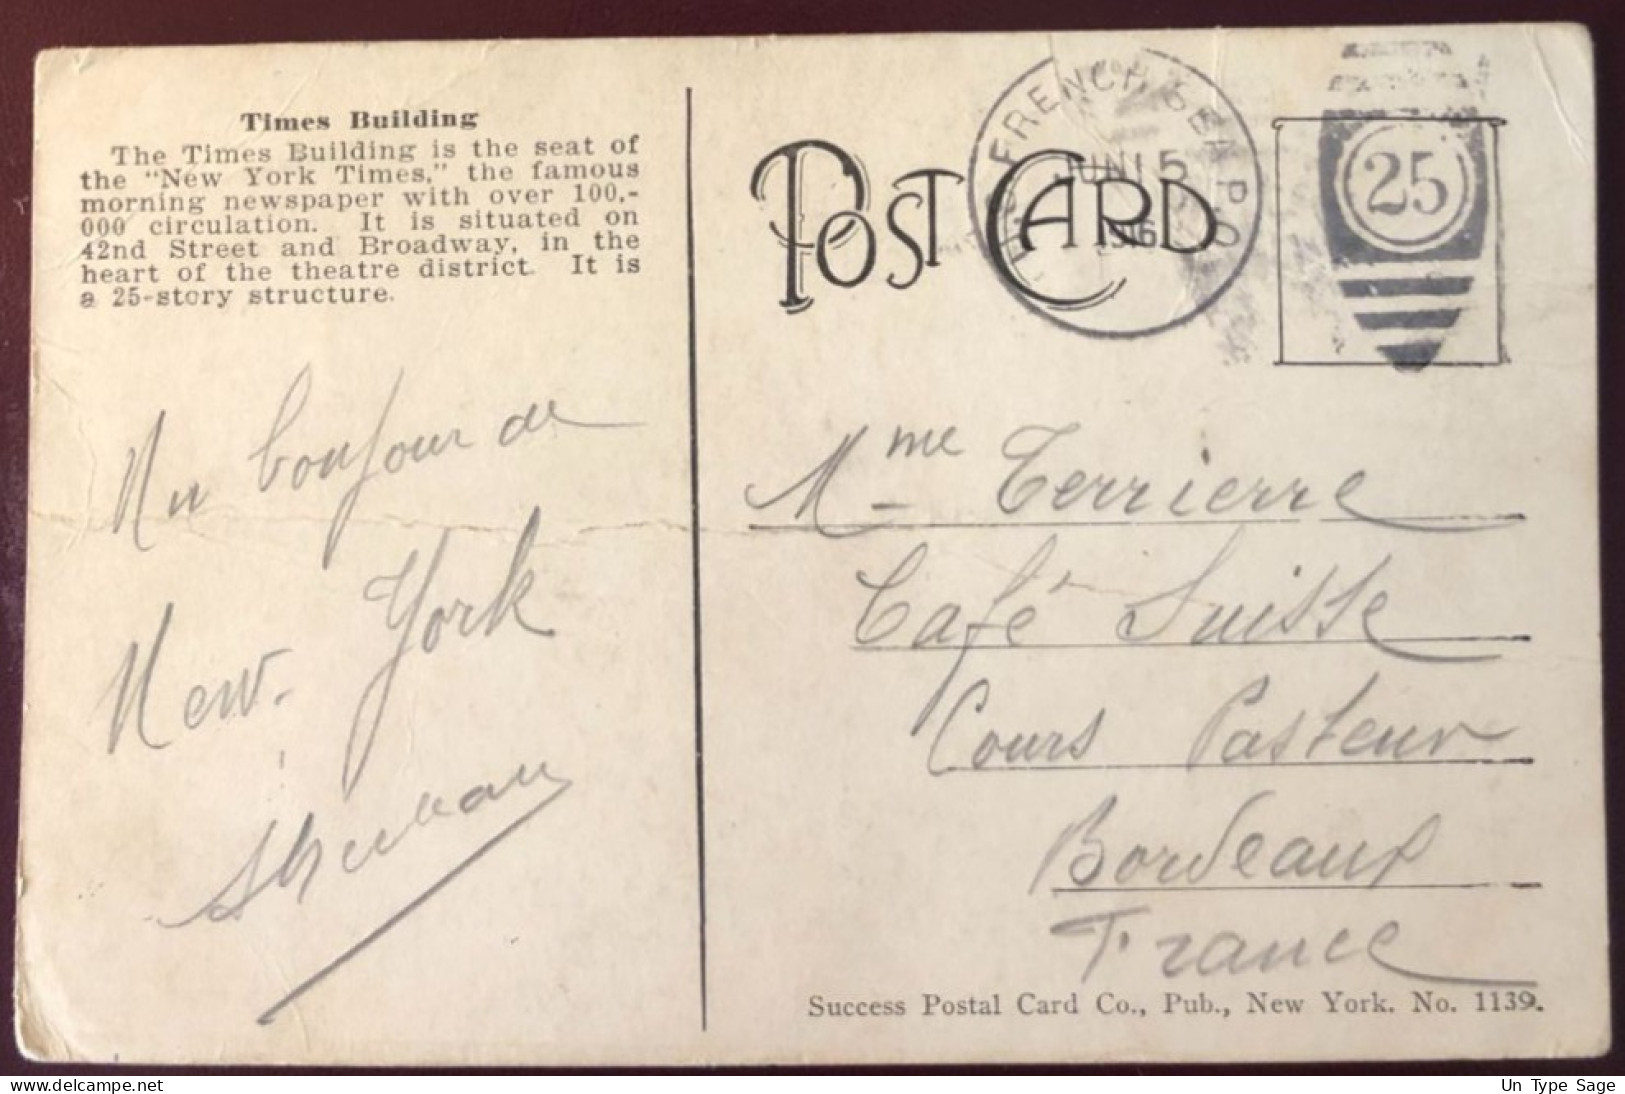 Times Building
The Times Building is the seat of
the "New York Times," the famous
morning newspaper with over 100,-
000 circulation. It is situated on
42nd Street and Broadway, in the
heart of the theatre district. It is
a 25-story structure.
Un bonjour de
New. York
POST CARD
FRENCH SEAPO
JUN 15
25
Mme Terrierre
Café Suisse
Cours Pasteur
Bordeaux
France
Success Postal Card Co., Pub., New York. No. 1139.
www.delcampe.net
Un Type Sage